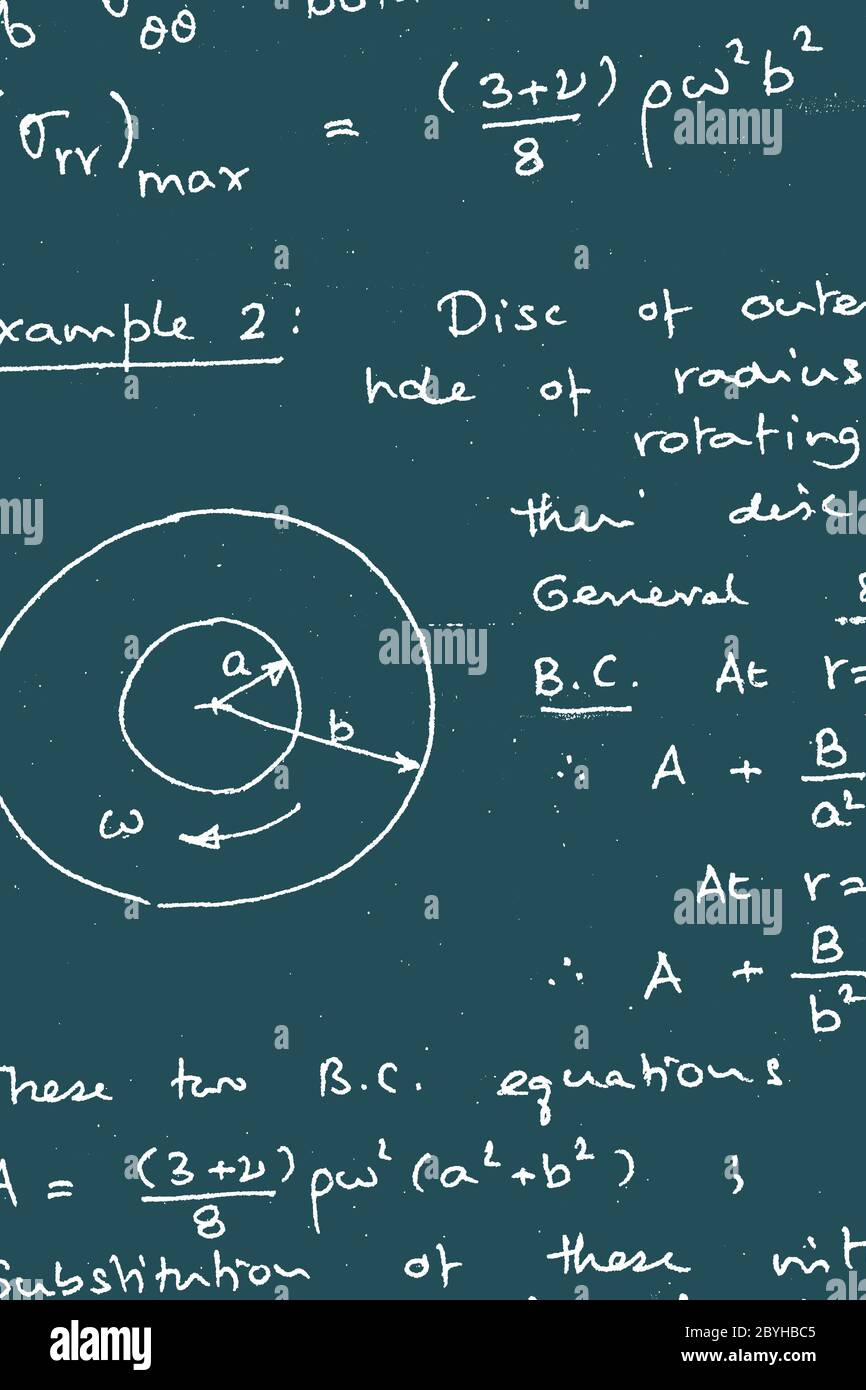 σθθ
σrr)max = (3+ν)/8 ρω²b²
xample 2: Disc of oute
hole of radius
rotating
then disc
General
B.C. At r=
∴ A + B/a²
At r=
∴ A + B/b²
a
b
ω
hese two B.C. equations
A = (3+ν)/8 ρω²(a²+b²) ;
Substitution of these int
alamy
Image ID: 2BYHBC5
www.alamy.com